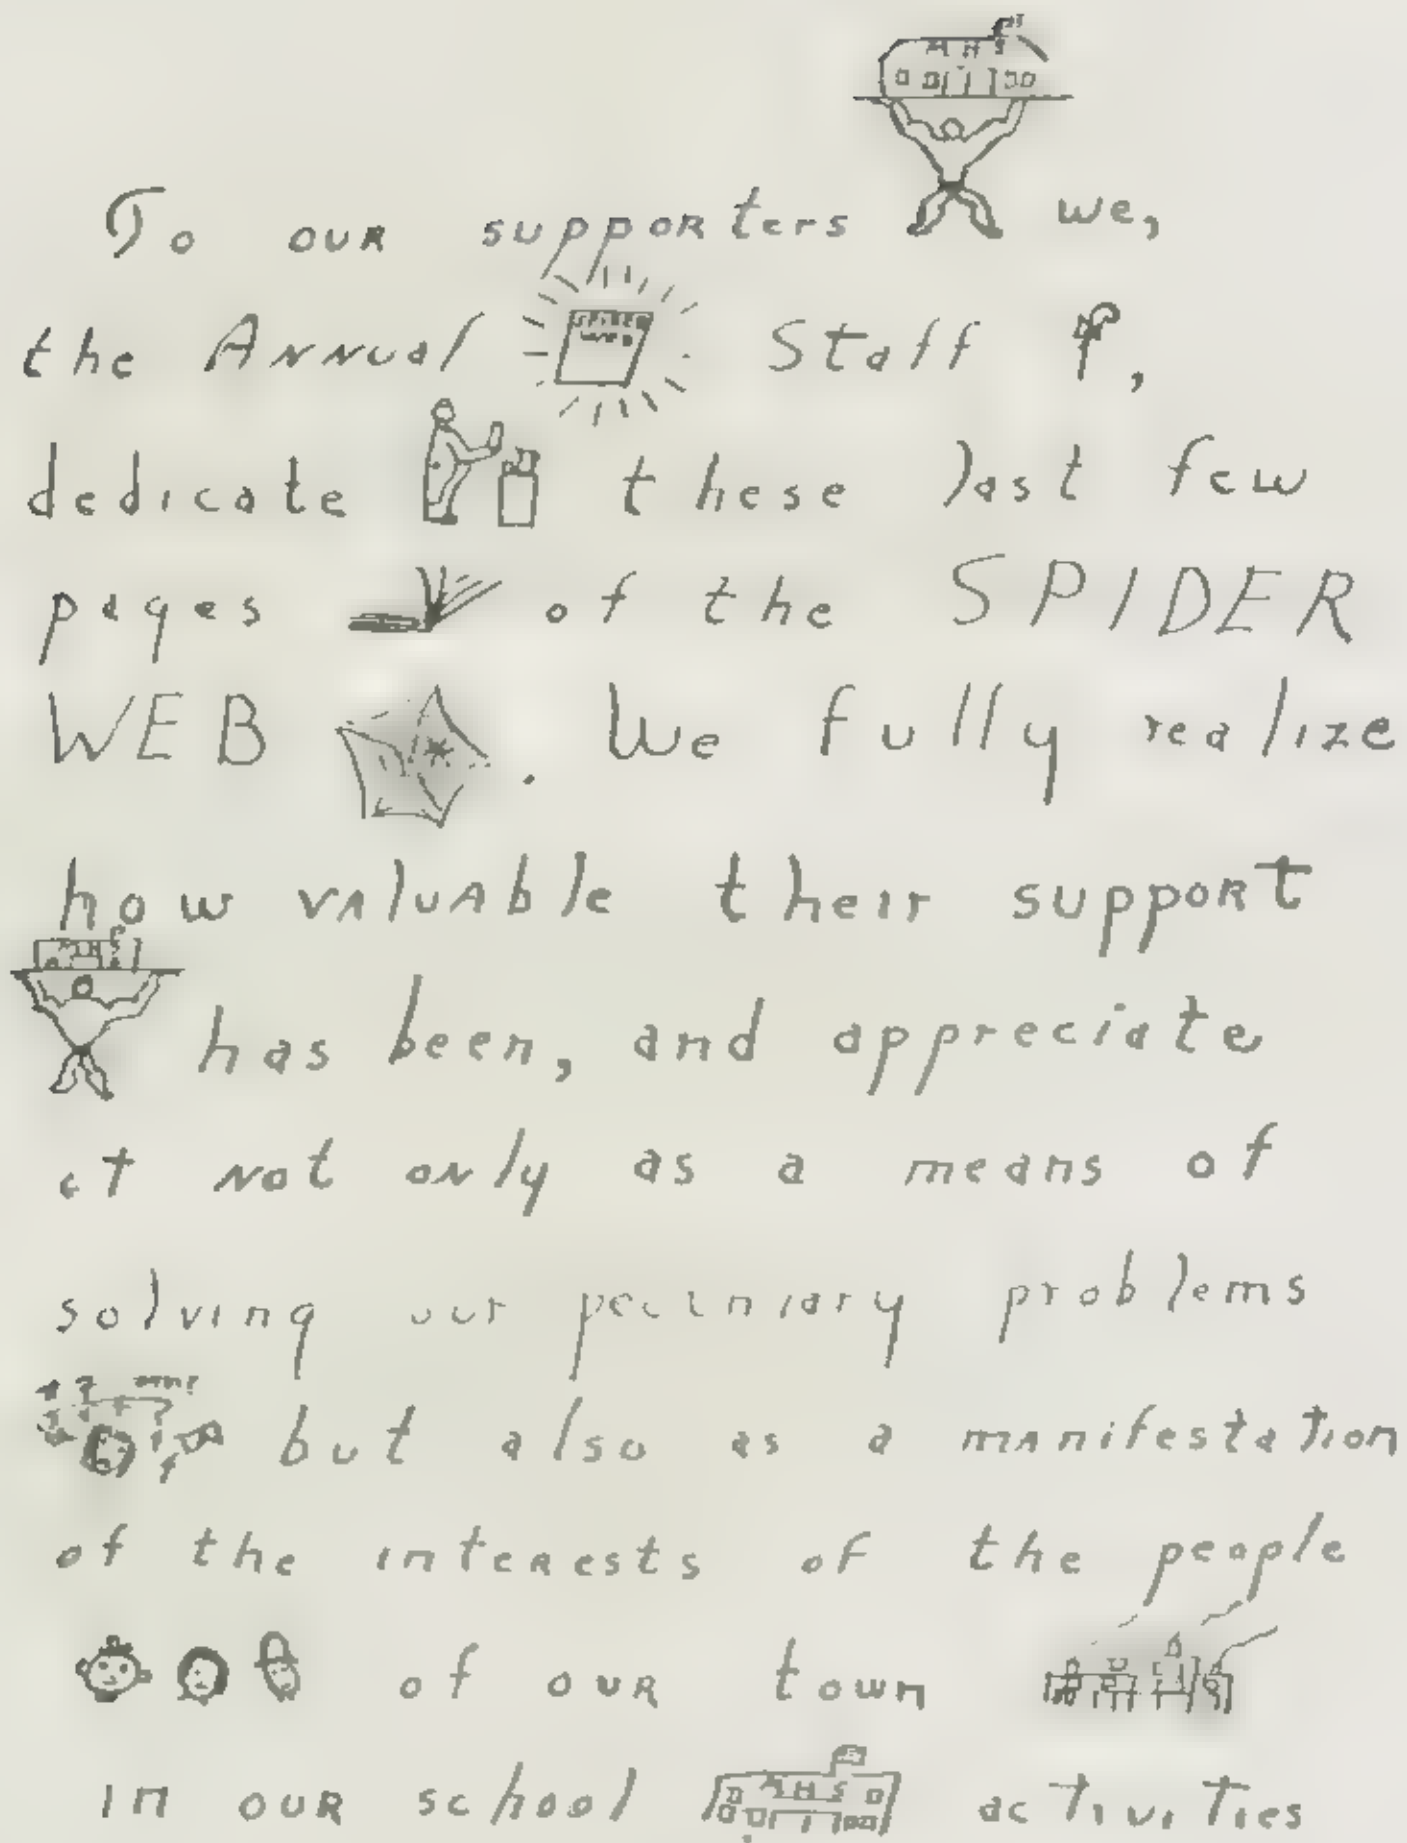 MHS
To our supporters we,
the Annual SPIDER WEB Staff,
dedicate these last few
pages of the SPIDER
WEB. We fully realize
how valuable their support
MHS
has been, and appreciate
it not only as a means of
solving our pecuniary problems
but also as a manifestation
of the interests of the people
of our town
in our school MHS activities